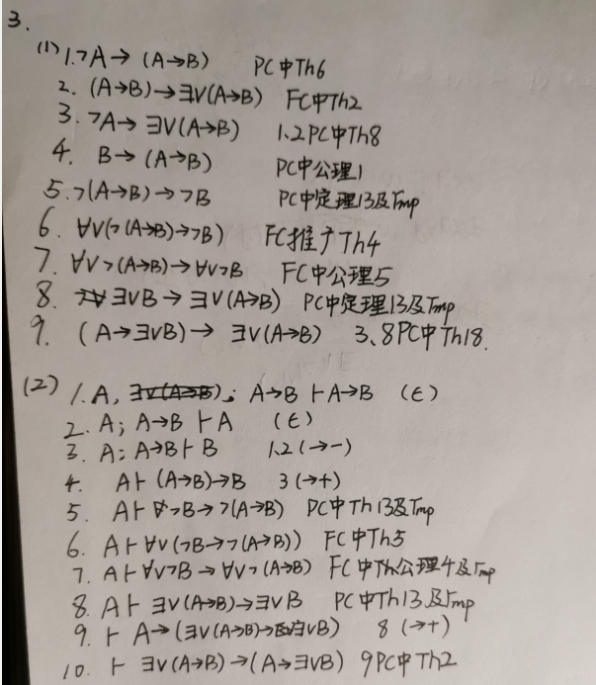 3.
(1) 1. ¬A→(A→B) PC中Th6
2. (A→B)→∃v(A→B) FC中Th2
3. ¬A→∃v(A→B) 1.2PC中Th8
4. B→(A→B) PC中公理1
5. ¬(A→B)→¬B PC中定理13及rmp
6. ∀v(¬(A→B)→¬B) FC推广Th4
7. ∀v¬(A→B)→∀v¬B FC中公理5
8. ∃vB→∃v(A→B) PC中定理13及rmp
9. (A→∃vB)→∃v(A→B) 3、8PC中Th18.
(2) 1. A, ; A→B⊢A→B (∈)
2. A; A→B⊢A (∈)
3. A; A→B⊢B 1.2(→-)
4. A⊢(A→B)→B 3(→+)
5. A⊢¬B→¬(A→B) PC中Th13及rmp
6. A⊢∀v(¬B→¬(A→B)) FC中Th5
7. A⊢∀v¬B→∀v¬(A→B) FC中Th公理4及rmp
8. A⊢∃v(A→B)→∃vB PC中Th13及rmp
9. ⊢A→(∃v(A→B)→∃vB) 8(→+)
10. ⊢∃v(A→B)→(A→∃vB) 9PC中Th2